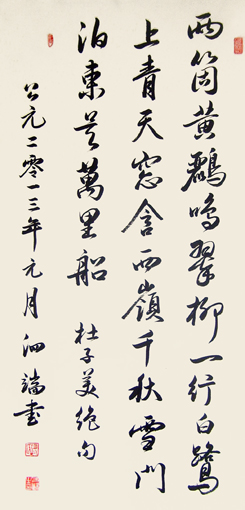 两箇黄鸝鸣翠柳一行白鹭
上青天窓含西嶺千秋雪门
泊東吴萬里船 杜子美绝句
公元二零一三年元月泗端书